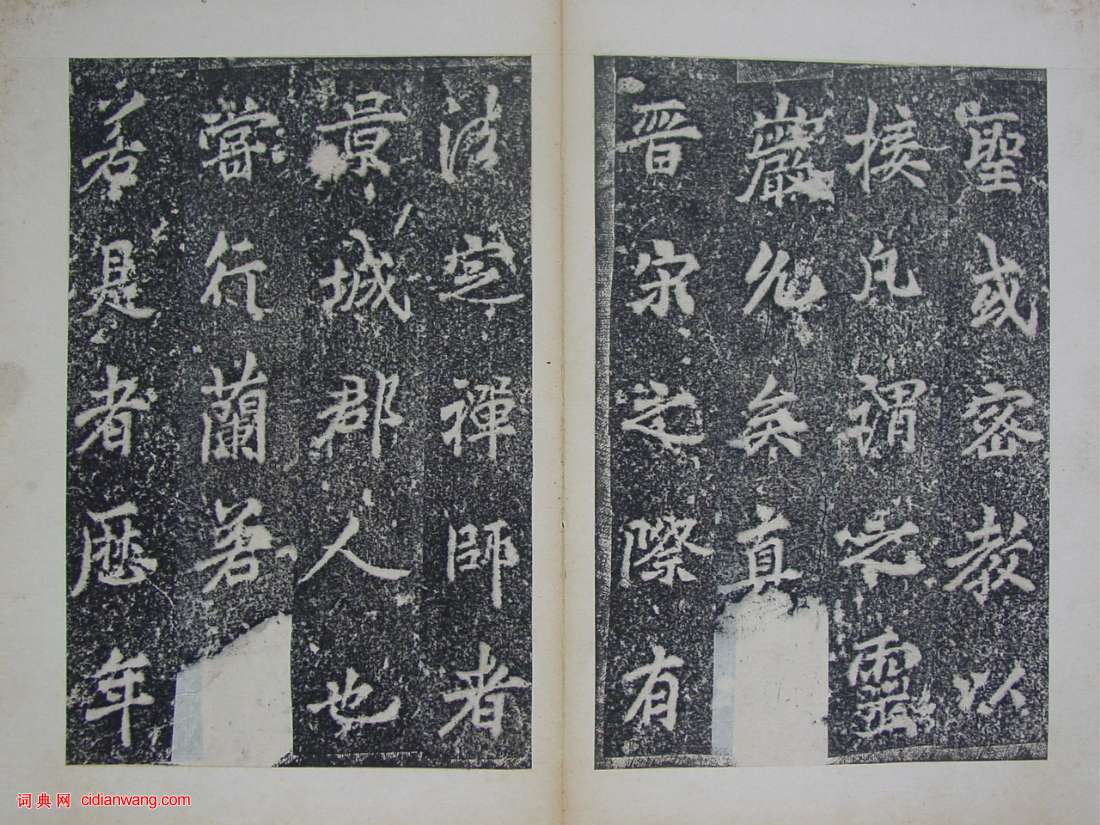 聖或密教以
接凡謂之靈
巖允矣真
晋宋之際有
法定禪師者
景城郡人也
嘗行蘭若
若是者歷年
词典网 cidianwang.com